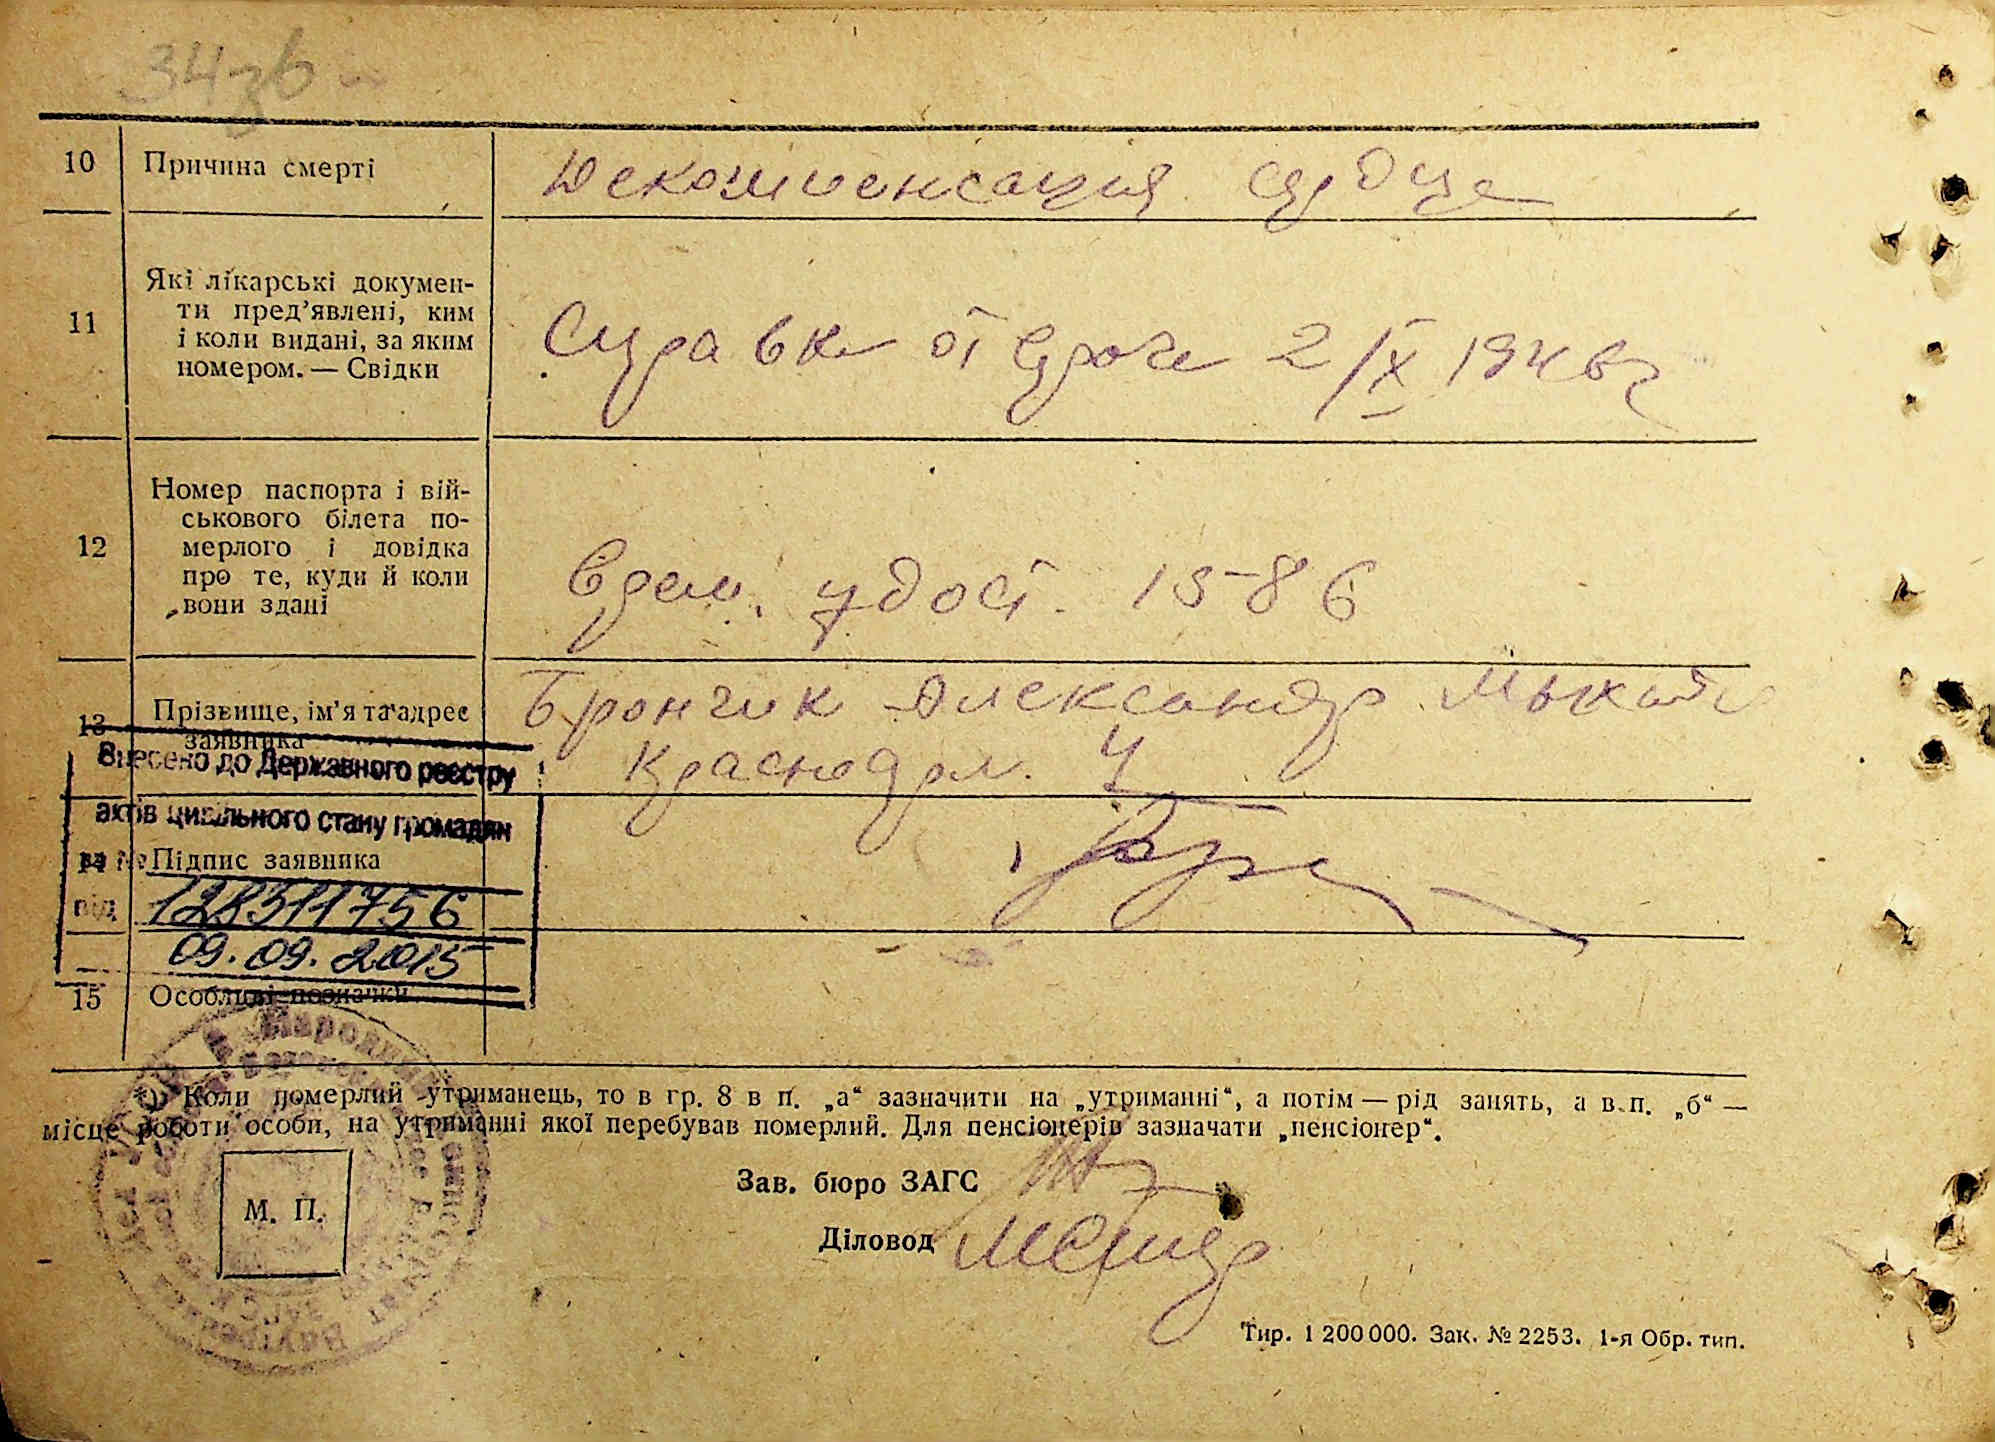 10 Причина смерті Декомпенсация сердца
11 Які лікарські докумен-
ти пред’явлені, ким
і коли видані, за яким
номером. — Свідки
Справка от врача 2/IX 1946 г
12 Номер паспорта і вій-
ськового білета по-
мерлого і довідка
про те, куди й коли
вони здані
Врем. удост. 1586
13 Прізвище, ім’я та адрес
заявника
Брончик Александр
Красноарм. 4
Внесено до Державного реєстру
актів цивільного стану громадян
за №
14 Підпис заявника
від 128311756
09.09.2015
15 Особливі позначки
*) Коли померлий утриманець, то в гр. 8 в п. „а“ зазначити на „утриманні“, а потім — рід занять, а в п. „б“ —
місце роботи особи, на утриманні якої перебував померлий. Для пенсіонерів зазначати „пенсіонер“.
Зав. бюро ЗАГС
М. П.
Діловод
Тир. 1 200 000. Зак. № 2253. 1-я Обр. тип.